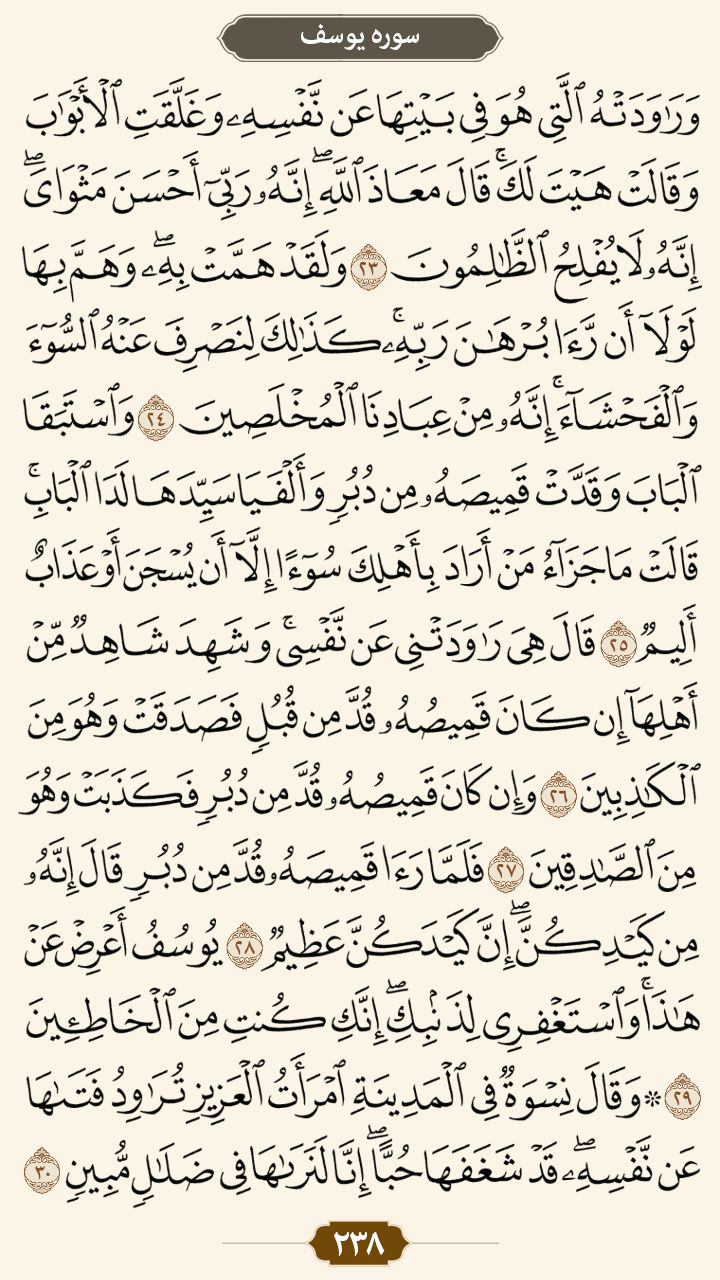 سوره یوسف
وَرَٰوَدَتۡهُ ٱلَّتِي هُوَ فِي بَيۡتِهَا عَن نَّفۡسِهِۦ وَغَلَّقَتِ ٱلۡأَبۡوَٰبَ
وَقَالَتۡ هَيۡتَ لَكَۚ قَالَ مَعَاذَ ٱللَّهِۖ إِنَّهُۥ رَبِّيٓ أَحۡسَنَ مَثۡوَايَۖ
إِنَّهُۥ لَا يُفۡلِحُ ٱلظَّٰلِمُونَ ٢٣ وَلَقَدۡ هَمَّتۡ بِهِۦۖ وَهَمَّ بِهَا
لَوۡلَآ أَن رَّءَا بُرۡهَٰنَ رَبِّهِۦۚ كَذَٰلِكَ لِنَصۡرِفَ عَنۡهُ ٱلسُّوٓءَ
وَٱلۡفَحۡشَآءَۚ إِنَّهُۥ مِنۡ عِبَادِنَا ٱلۡمُخۡلَصِينَ ٢٤ وَٱسۡتَبَقَا
ٱلۡبَابَ وَقَدَّتۡ قَمِيصَهُۥ مِن دُبُرٖ وَأَلۡفَيَا سَيِّدَهَا لَدَا ٱلۡبَابِۚ
قَالَتۡ مَا جَزَآءُ مَنۡ أَرَادَ بِأَهۡلِكَ سُوٓءًا إِلَّآ أَن يُسۡجَنَ أَوۡ عَذَابٌ
أَلِيمٞ ٢٥ قَالَ هِيَ رَٰوَدَتۡنِي عَن نَّفۡسِيۚ وَشَهِدَ شَاهِدٞ مِّنۡ
أَهۡلِهَآ إِن كَانَ قَمِيصُهُۥ قُدَّ مِن قُبُلٖ فَصَدَقَتۡ وَهُوَ مِنَ
ٱلۡكَٰذِبِينَ ٢٦ وَإِن كَانَ قَمِيصُهُۥ قُدَّ مِن دُبُرٖ فَكَذَبَتۡ وَهُوَ
مِنَ ٱلصَّٰدِقِينَ ٢٧ فَلَمَّا رَءَا قَمِيصَهُۥ قُدَّ مِن دُبُرٖ قَالَ إِنَّهُۥ
مِن كَيۡدِكُنَّۖ إِنَّ كَيۡدَكُنَّ عَظِيمٞ ٢٨ يُوسُفُ أَعۡرِضۡ عَنۡ
هَٰذَاۚ وَٱسۡتَغۡفِرِي لِذَنۢبِكِۖ إِنَّكِ كُنتِ مِنَ ٱلۡخَاطِـِٔينَ
٢٩ ۞ وَقَالَ نِسۡوَةٞ فِي ٱلۡمَدِينَةِ ٱمۡرَأَتُ ٱلۡعَزِيزِ تُرَٰوِدُ فَتَىٰهَا
عَن نَّفۡسِهِۦۖ قَدۡ شَغَفَهَا حُبًّاۖ إِنَّا لَنَرَىٰهَا فِي ضَلَٰلٖ مُّبِينٖ ٣٠
٢٣٨